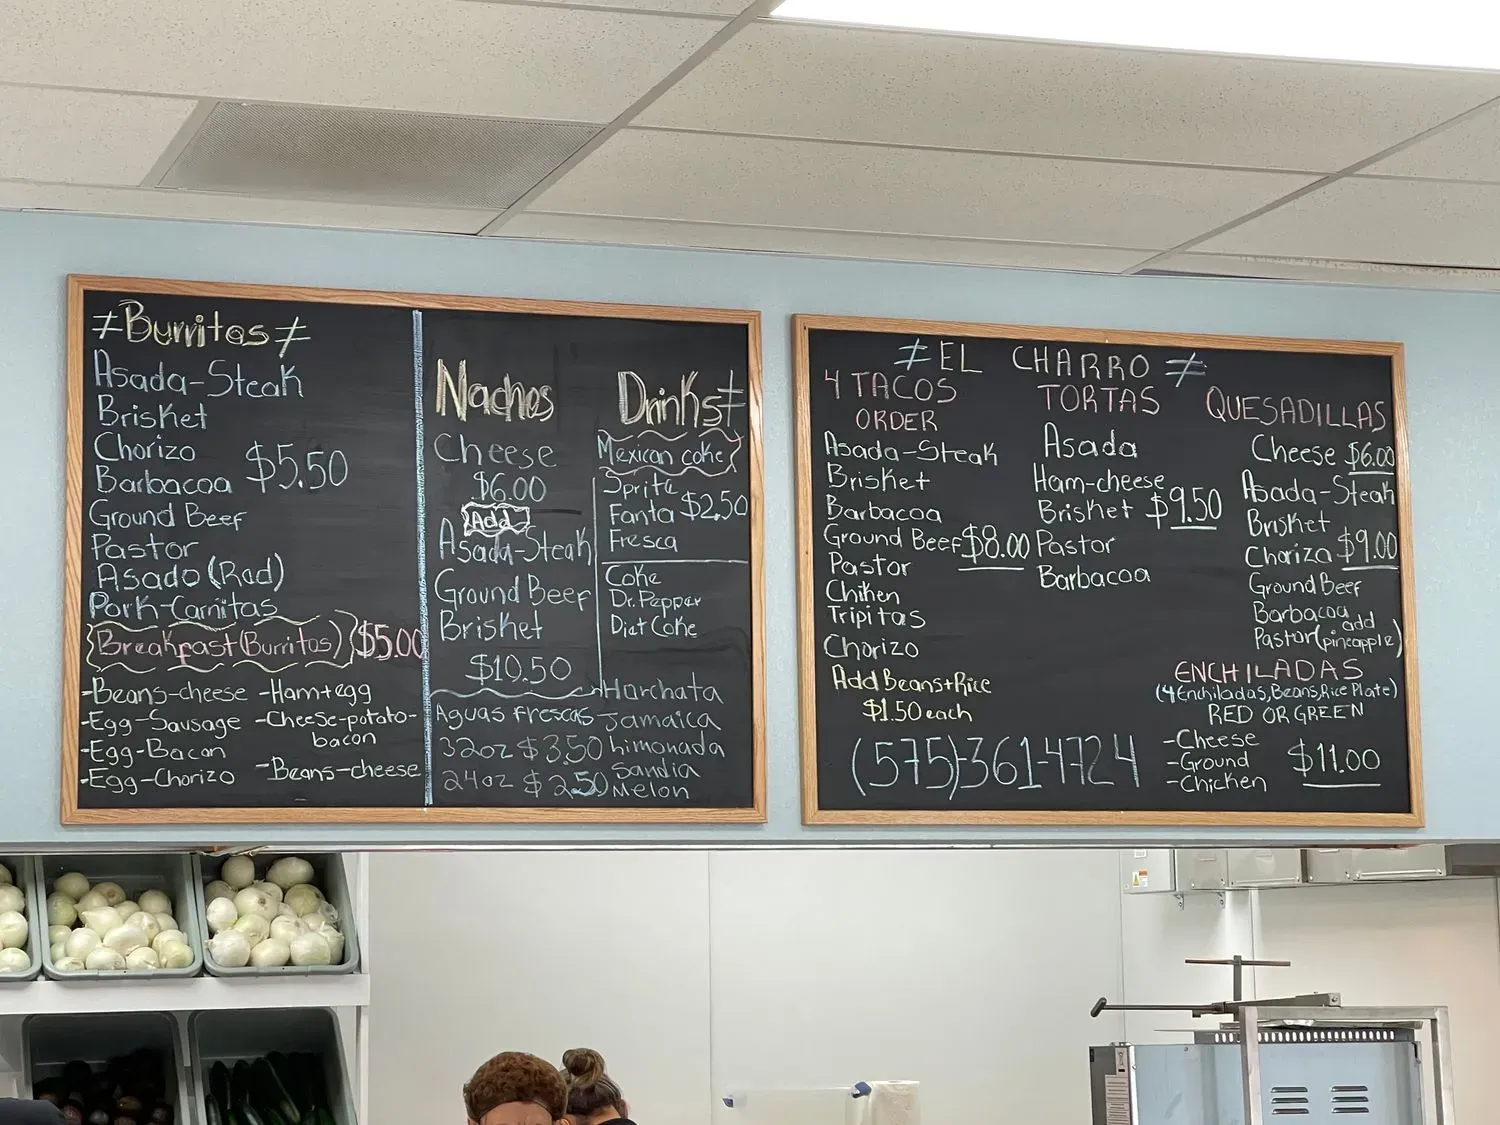 ≠Burritos≠
Asada-Steak
Brisket
Chorizo
Barbacoa $5.50
Ground Beef
Pastor
Asado (Rad)
Pork-Carnitas
Breakfast (Burritos) $5.00
-Beans-cheese
-Egg-Sausage
-Egg-Bacon
-Egg-Chorizo
-Ham+egg
-Cheese-potato-
bacon
-Beans-cheese
Nachos
Cheese
$6.00
Add
Asada-Steak
Ground Beef
Brisket
$10.50
Drinks≠
Mexican coke
Sprite
Fanta $2.50
Fresca
Coke
Dr. Pepper
Diet Coke
Aguas frescas
32oz $3.50
24oz $2.50
Harchata
Jamaica
Limonada
Sandia
Melon
≠EL CHARRO≠
4 TACOS
ORDER
Asada-Steak
Brisket
Barbacoa
Ground Beef $8.00
Pastor
Chiken
Tripitas
Chorizo
Add Beans+Rice
$1.50 each
TORTAS
Asada
Ham-cheese
Brisket $9.50
Pastor
Barbacoa
QUESADILLAS
Cheese $6.00
Asada-Steak
Brisket
Choriza $9.00
Ground Beef
Barbacoa
add
Pastor(pineapple)
ENCHILADAS
(4 Enchiladas, Beans, Rice Plate)
RED OR GREEN
-Cheese
-Ground
-Chicken
$11.00
(575)-361-4724